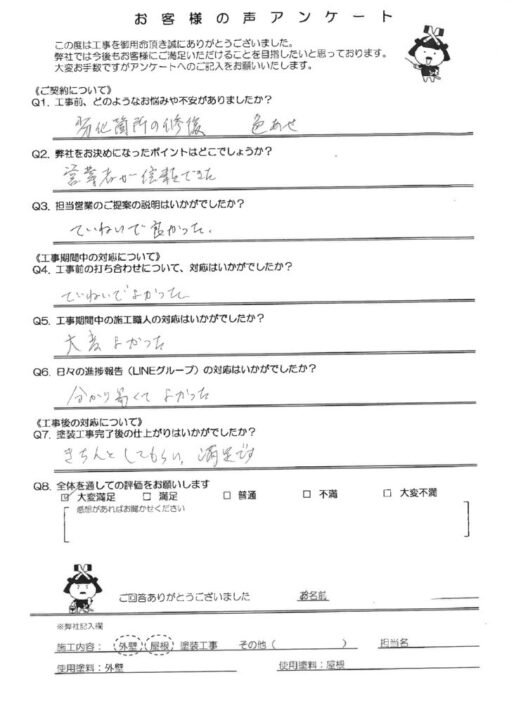 お客様の声アンケート
この度は工事を御用命頂き誠にありがとうございました。
弊社では今後もお客様にご満足いただけることを目指したいと思っております。
大変お手数ですがアンケートへのご記入をお願いいたします。
《ご契約について》
Q1. 工事前、どのようなお悩みや不安がありましたか？
劣化箇所の修復　色あせ
Q2. 弊社をお決めになったポイントはどこでしょうか？
営業者が信頼できた
Q3. 担当営業のご提案の説明はいかがでしたか？
ていねいで良かった。
《工事期間中の対応について》
Q4. 工事前の打ち合わせについて、対応はいかがでしたか？
ていねいでよかった
Q5. 工事期間中の施工職人の対応はいかがでしたか？
大変よかった
Q6. 日々の進捗報告（LINEグループ）の対応はいかがでしたか？
分かり易くてよかった
《工事後の対応について》
Q7. 塗装工事完了後の仕上がりはいかがでしたか？
きちんとしてもらい、満足です
Q8. 全体を通しての評価をお願いします
☑ 大変満足　□ 満足　□ 普通　□ 不満　□ 大変不満
感想があればお聞かせください
ご回答ありがとうございました　お名前
※弊社記入欄
施工内容：（外壁）（屋根）塗装工事　その他（　　　）　担当名
使用塗料：外壁　使用塗料：屋根